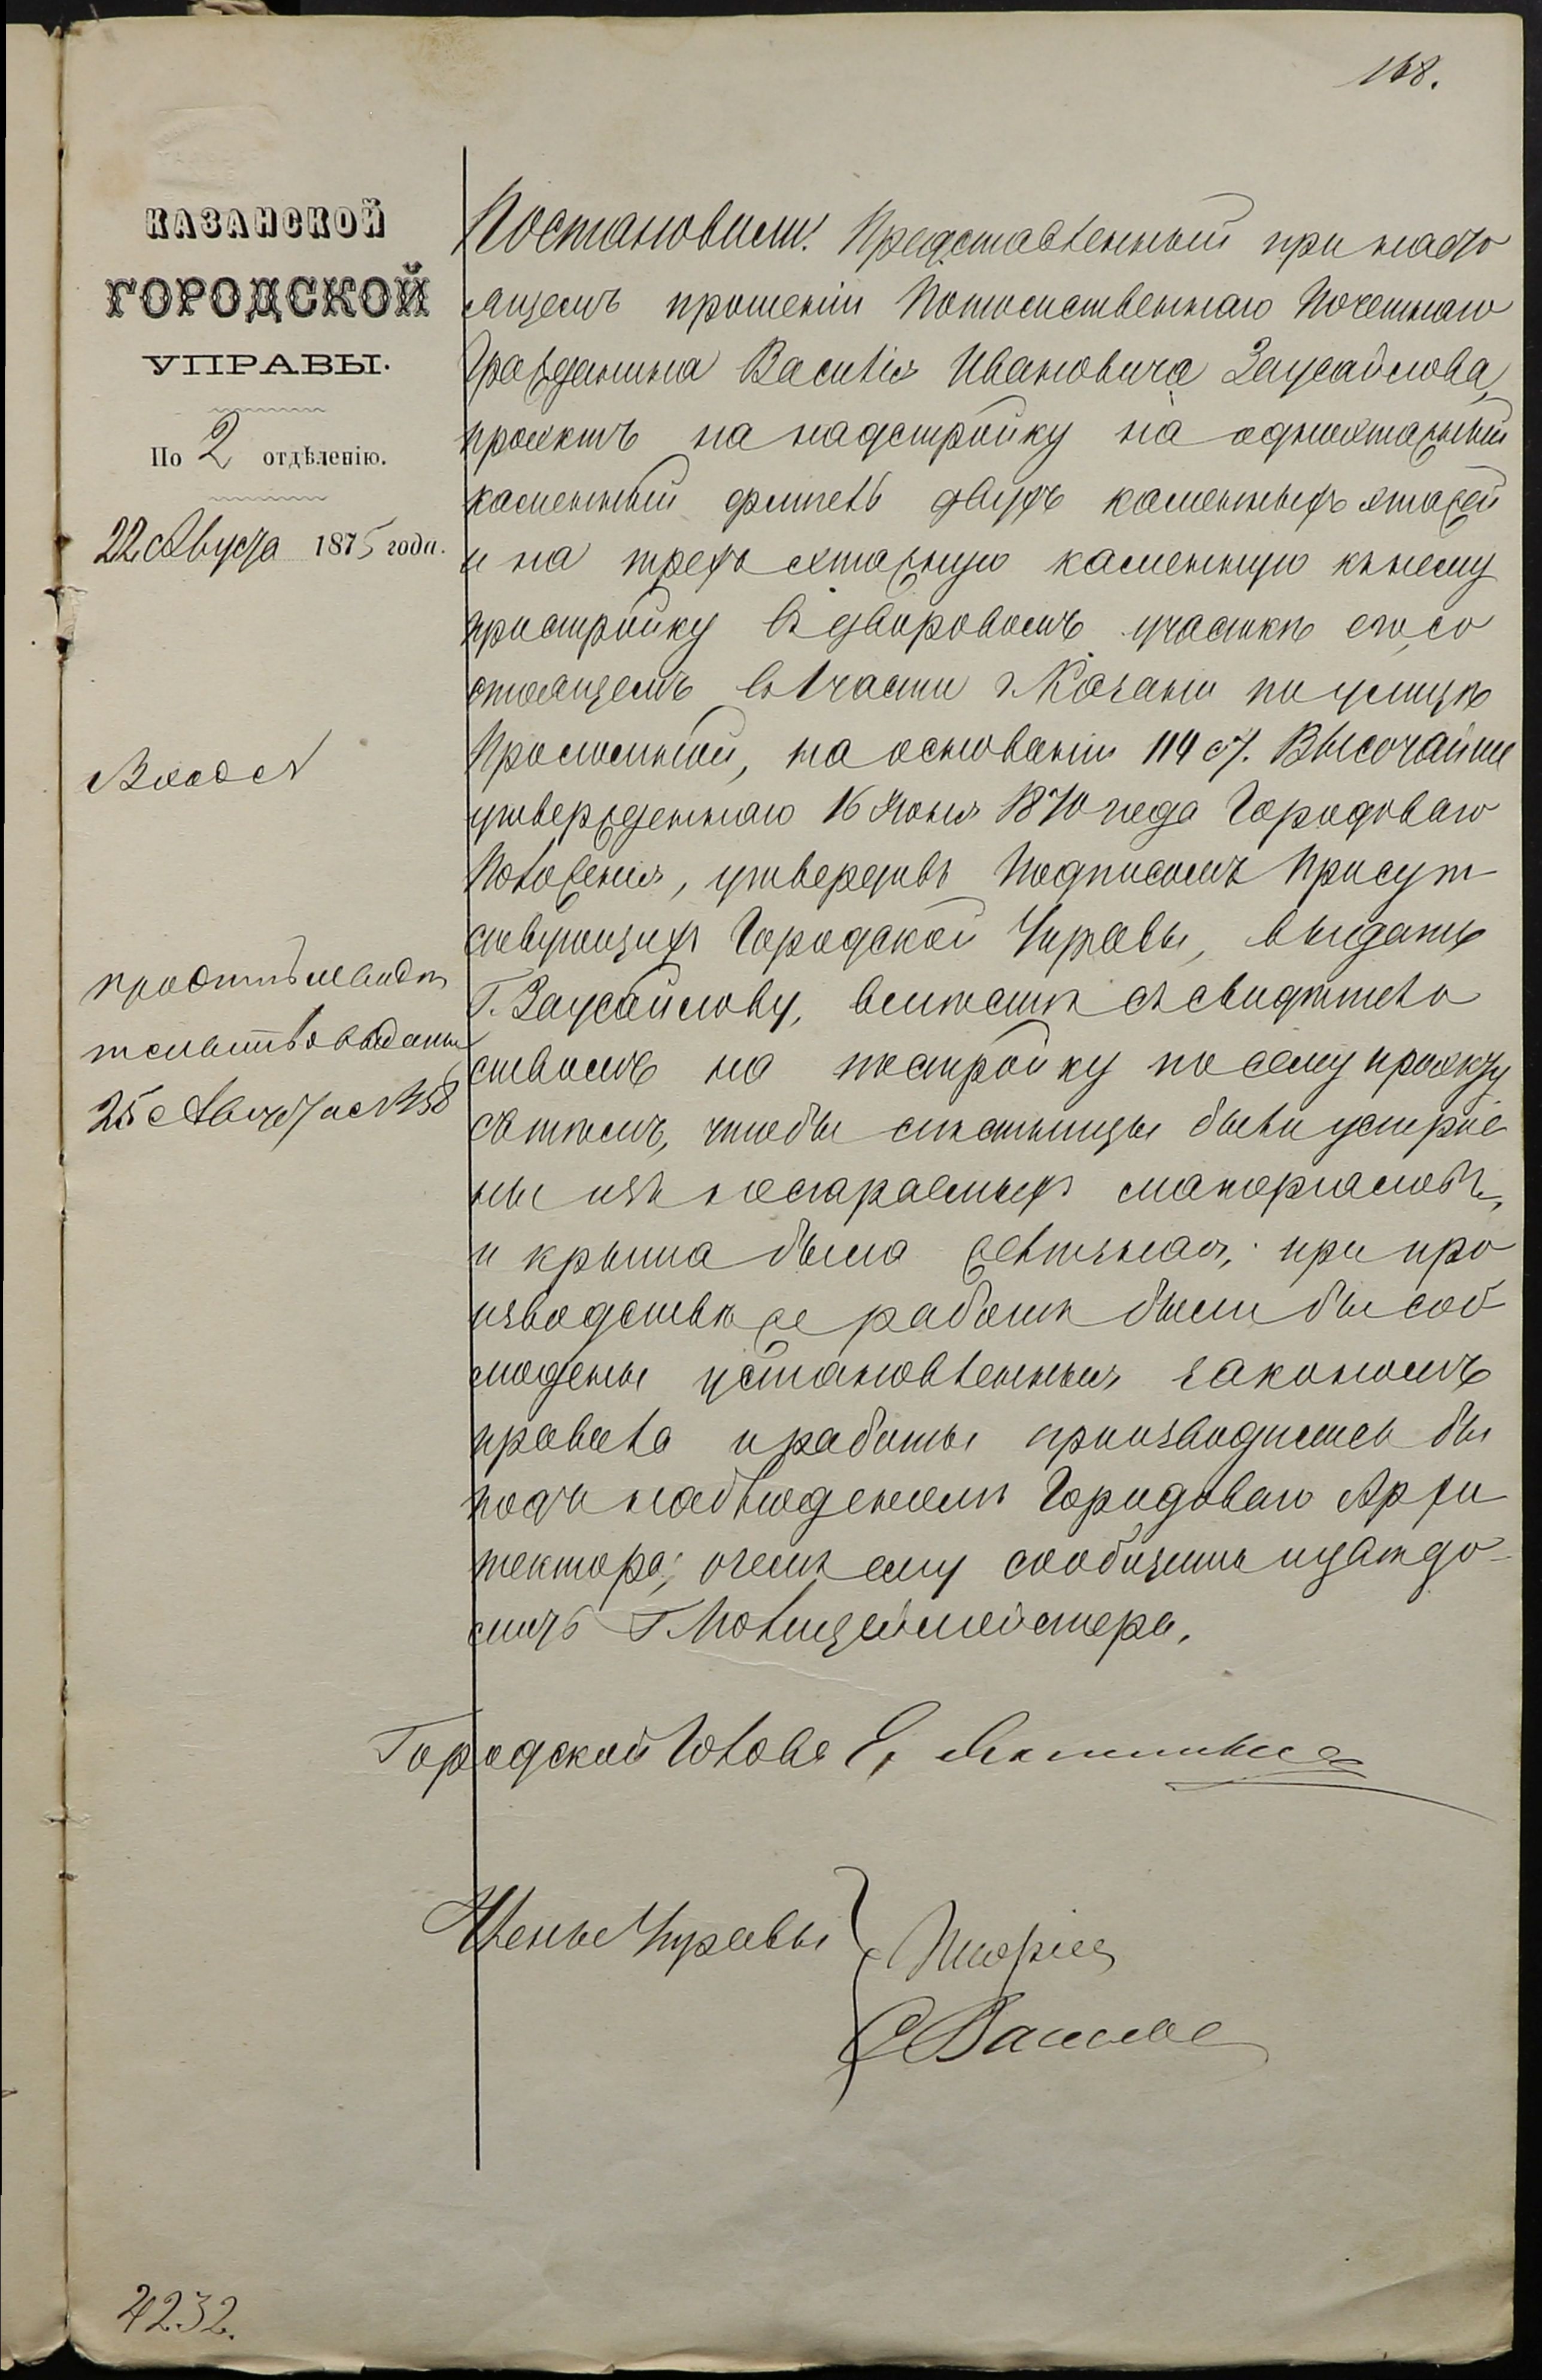 168.
КАЗАНСКОЙ
ГОРОДСКОЙ
УПРАВЫ.
По 2 отдѣленію.
22 Августа 1875 года.
Постановили: Представленный при насто
ящемъ прошеніи Потомственнаго Почетнаго
Гражданина Василія Ивановича Заусайлова,
проэктъ на надстройку на одноэтажный
каменный флигель двухъ каменныхъ этажей
и на трехъ этажную каменную къ нему
пристройку въ дворовомъ участкѣ его, со
стоящемъ в 1 части г. Казани по улицѣ
Проломной, на основаніи 114 ст. Высочайше
утвержденнаго 16 Июня 1870 года Городоваго
Положенія, утвердивъ подписомъ Присут
ствующихъ Городской Управы, выдать
Г. Заусайлову, вмѣстѣ съ свидѣтель
ствомъ на постройку по сему проэкту
съ тѣмъ, чтобы лѣстницы были устрое
ны изъ несгараемыхъ матеріаловъ,
и крыша была желѣзная; при про
изводствѣ же работъ были бы соб
людены установленныя закономъ
правила и работы производились бы
подъ наблюденіемъ Городоваго Архи
тектора; о чемъ ему сообщить и увѣдо-
мить Г. Полицеймейстера.
проэктъ
выданы
25 Августа
Городской Голова Е.
Члены Управы
4232.